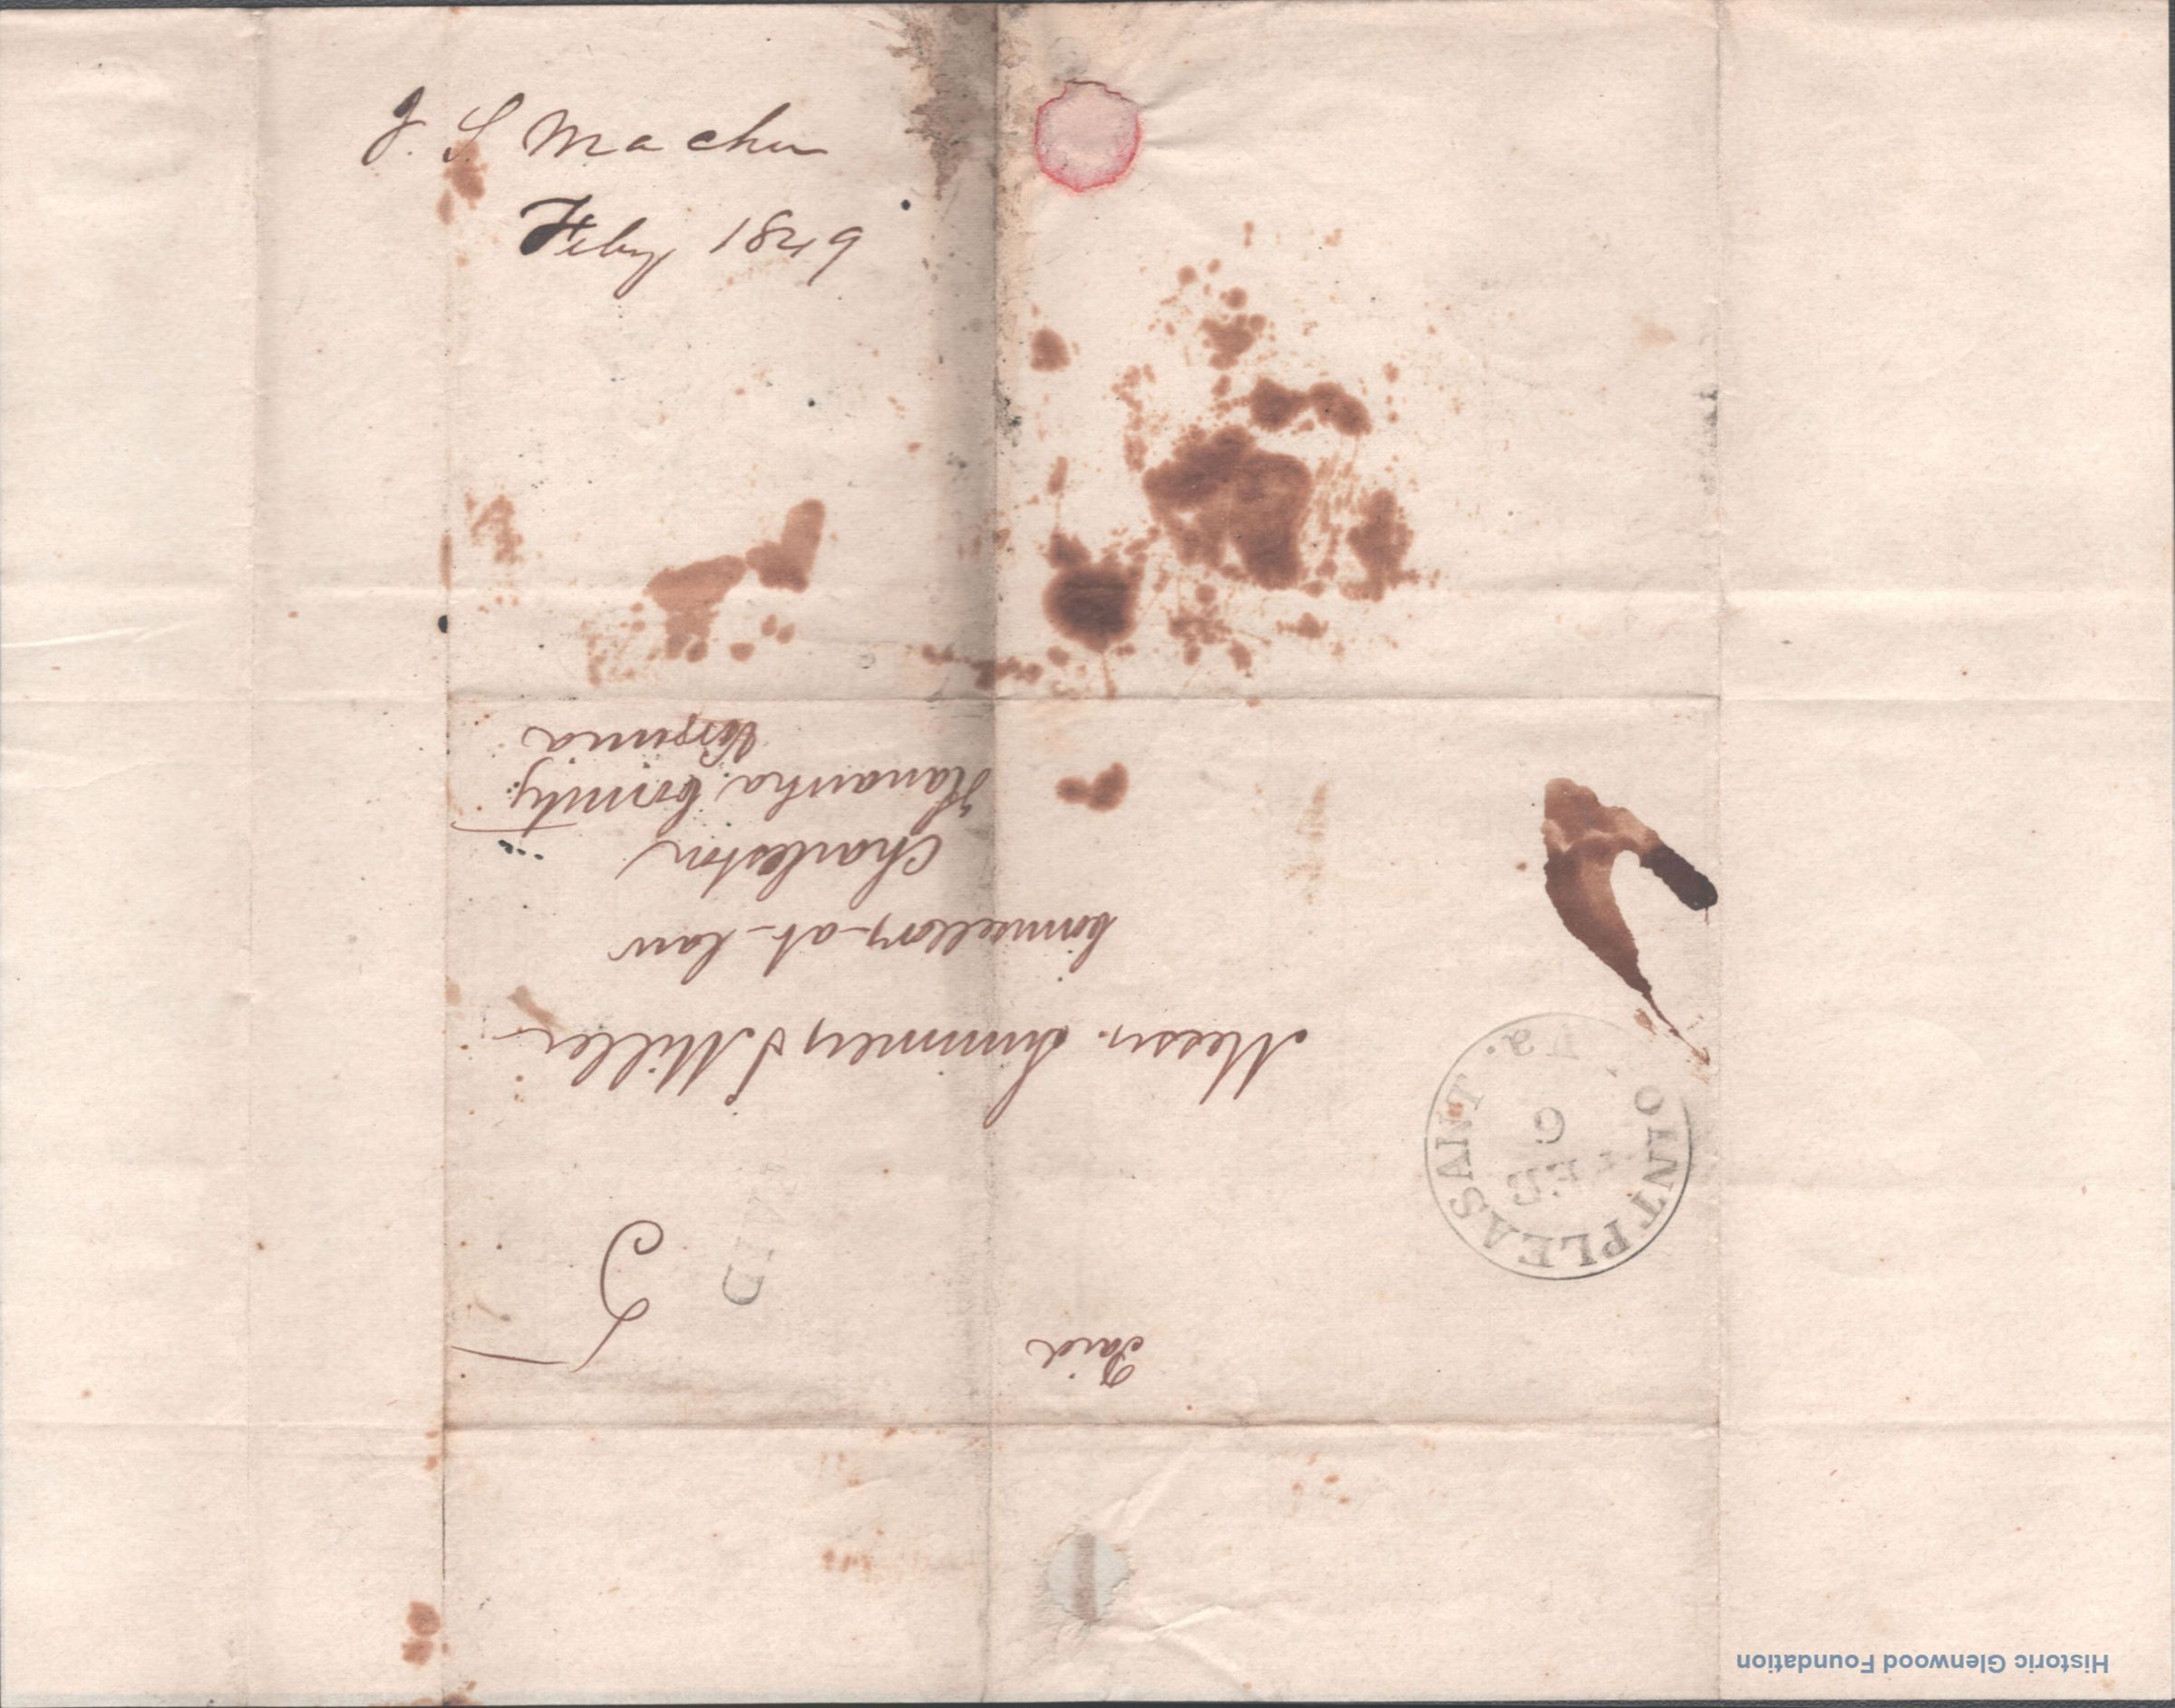 J. S Machu
Feby 1849
Paid
5
POINT PLEASANT Va.
FEB
6
Messrs. Summers & Miller
Counsellors-at-law
Charleston
Kanawha County
Virginia
Historic Glenwood Foundation